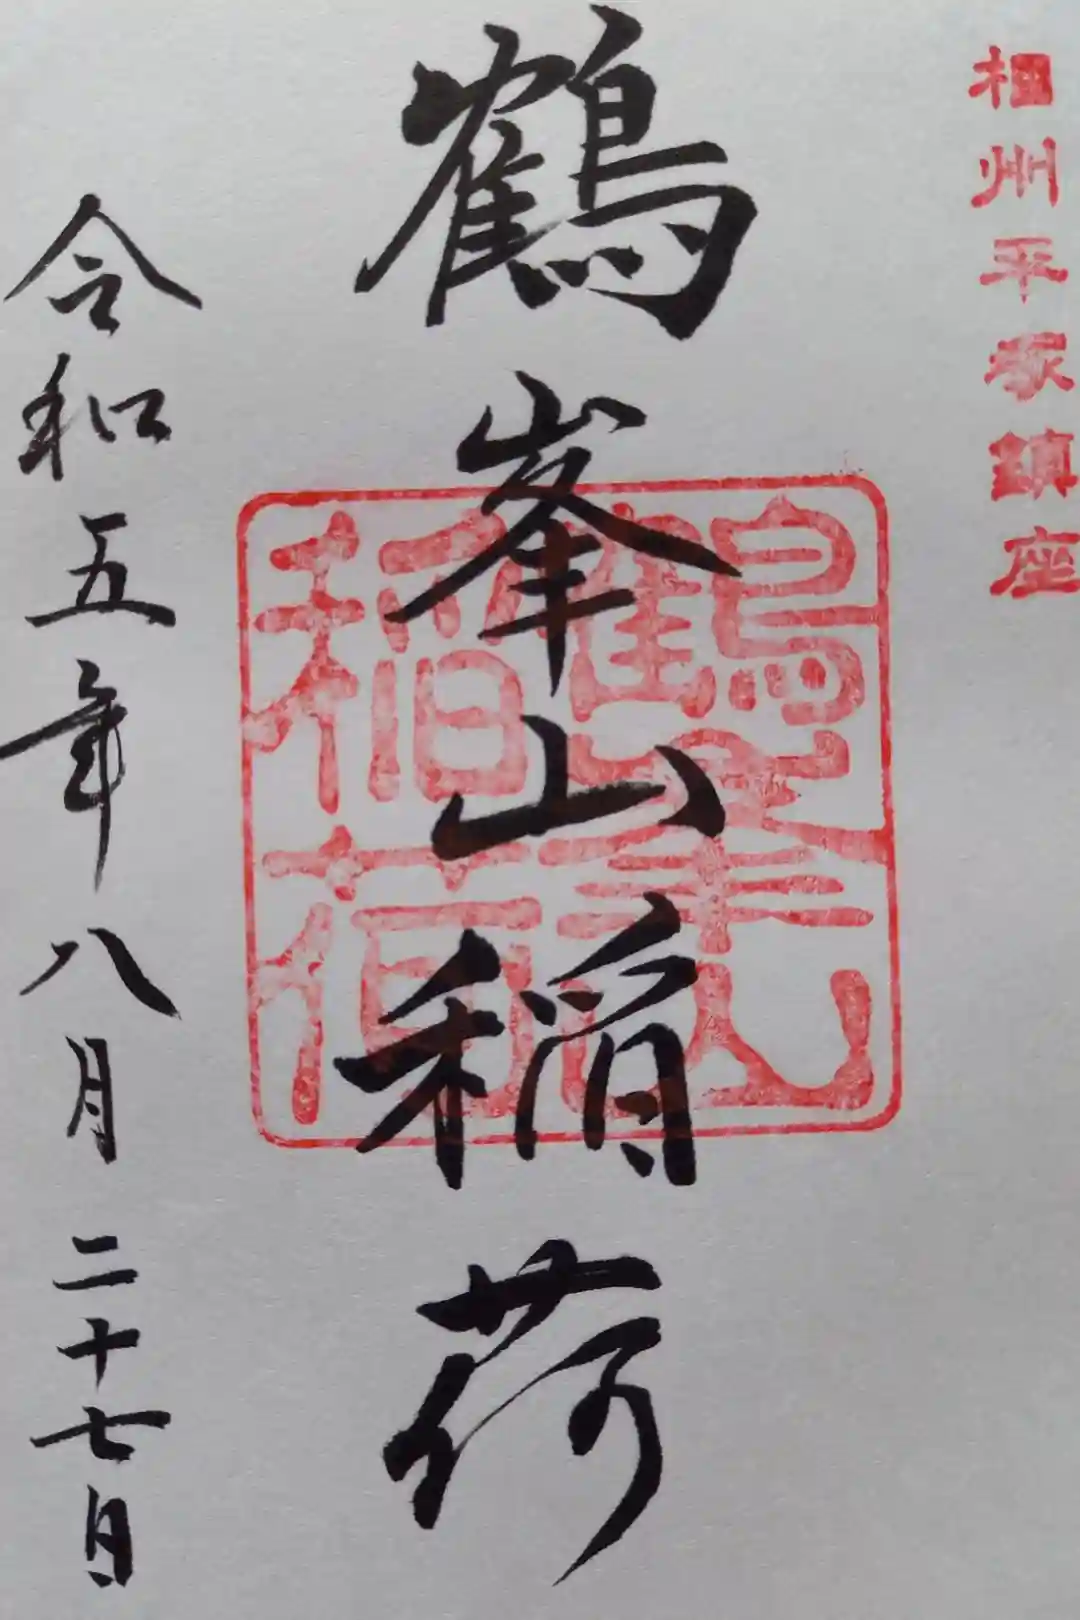 相州平塚鎮座
鶴峯山稲荷
令和五年八月二十七日
鶴峯山
稲荷